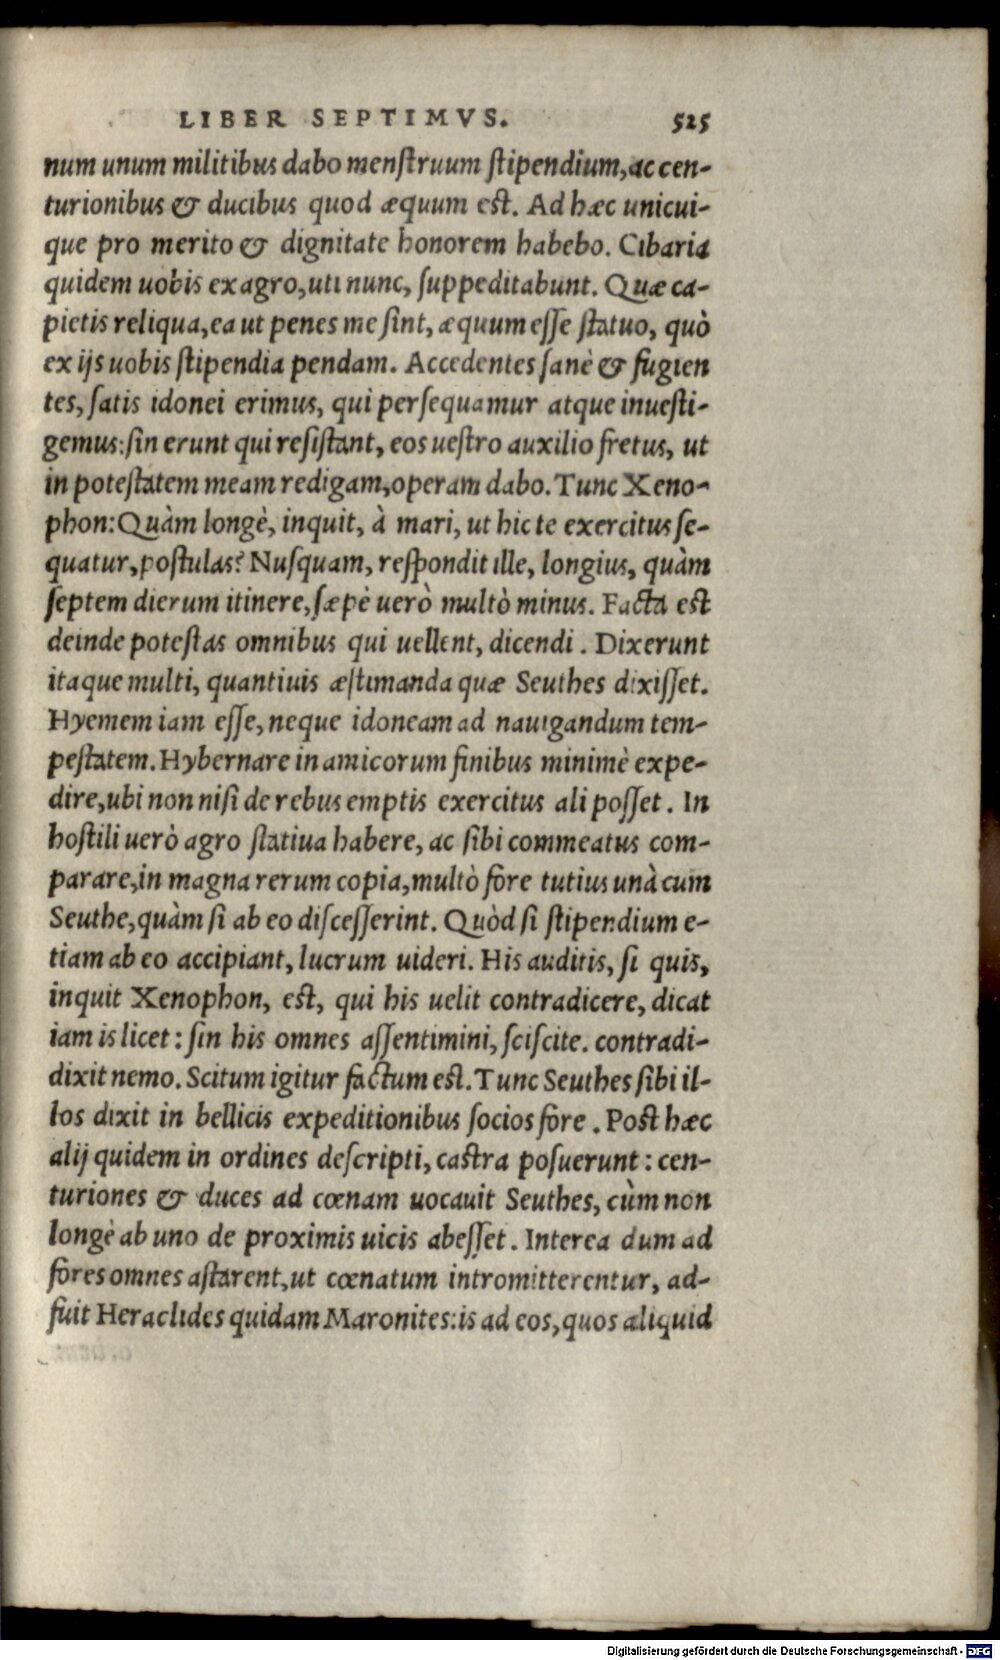 LIBER SEPTIMVS. 525
num unum militibus dabo menſtruum ſtipendium, ac cen-
turionibus & ducibus quod æquum est. Ad hæc unicui-
que pro merito & dignitate honorem habebo. Cibaria
quidem uobis ex agro, uti nunc, ſuppeditabunt. Quæ ca-
pietis reliqua, ea ut penes me ſint, æquum eſſe ſtatuo, quò
ex ijs uobis ſtipendia pendam. Accedentes ſanè & fugien
tes, ſatis idonei erimus, qui perſequamur atque inueſti-
gemus: ſin erunt qui reſiſtant, eos ueſtro auxilio fretus, ut
in poteſtatem meam redigam, operam dabo. Tunc Xeno-
phon: Quàm longè, inquit, à mari, ut hic te exercitus ſe-
quatur, poſtulas? Nuſquam, reſpondit ille, longius, quàm
ſeptem dierum itinere, ſæpè uerò multò minus. Facta est
deinde poteſtas omnibus qui uellent, dicendi. Dixerunt
itaque multi, quantiuis æſtimanda quæ Seuthes dixiſſet.
Hyemem iam eſſe, neque idoneam ad nauigandum tem-
peſtatem. Hybernare in amicorum finibus minimè expe-
dire, ubi non niſi de rebus emptis exercitus ali poſſet. In
hoſtili uerò agro ſtatiua habere, ac ſibi commeatus com-
parare, in magna rerum copia, multò fore tutius unà cum
Seuthe, quàm ſi ab eo diſceſſerint. Quòd ſi ſtipendium e-
tiam ab eo accipiant, lucrum uideri. His auditis, ſi quis,
inquit Xenophon, est, qui his uelit contradicere, dicat
iam is licet: ſin his omnes aſſentimini, ſciſcite. contradi-
dixit nemo. Scitum igitur factum est. Tunc Seuthes ſibi il-
los dixit in bellicis expeditionibus ſocios fore. Post hæc
alij quidem in ordines deſcripti, caſtra poſuerunt: cen-
turiones & duces ad cœnam uocauit Seuthes, cùm non
longè ab uno de proximis uicis abeſſet. Interea dum ad
fores omnes aſtarent, ut cœnatum intromitterentur, ad-
fuit Heraclides quidam Maronites: is ad eos, quos aliquid
Digitalisierung gefördert durch die Deutsche Forschungsgemeinschaft - DFG